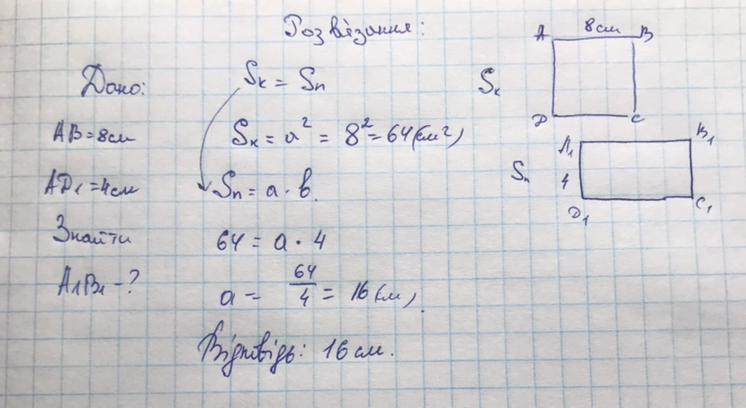 Розвʼязання:
Дано:
AB = 8см
AD₁ = 4см
Знайти
A₁B₁ - ?
Sк = Sп
Sк = a² = 8² = 64 (см²)
Sп = a · b.
64 = a · 4
a = 64/4 = 16 (см).
Відповідь: 16 см.
A 8см B
Sк
D C
A₁ B₁
Sп 4
D₁ C₁